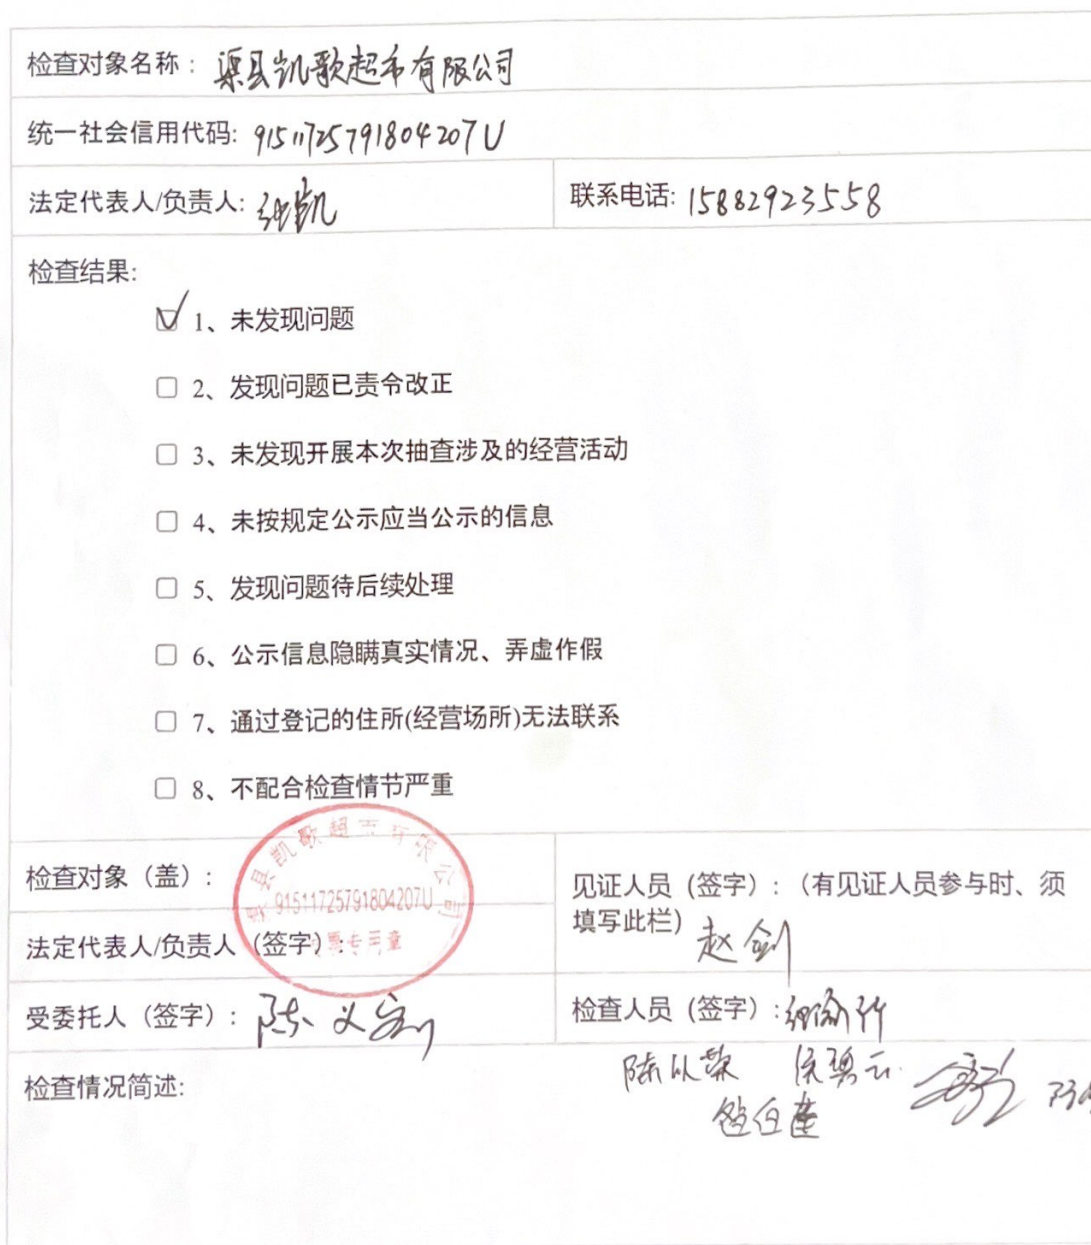 检查对象名称：渠县凯歌超市有限公司
统一社会信用代码: 91511725791804207U
法定代表人/负责人: 张凯 联系电话: 15882923558
检查结果:
☑ 1、未发现问题
□ 2、发现问题已责令改正
□ 3、未发现开展本次抽查涉及的经营活动
□ 4、未按规定公示应当公示的信息
□ 5、发现问题待后续处理
□ 6、公示信息隐瞒真实情况、弄虚作假
□ 7、通过登记的住所(经营场所)无法联系
□ 8、不配合检查情节严重
渠县凯歌超市有限公司
91511725791804207U
发票专用章
检查对象（盖）:
见证人员（签字）:（有见证人员参与时、须
填写此栏）赵剑
法定代表人/负责人（签字）:
受委托人（签字）: 陈义
检查人员（签字）:
检查情况简述: